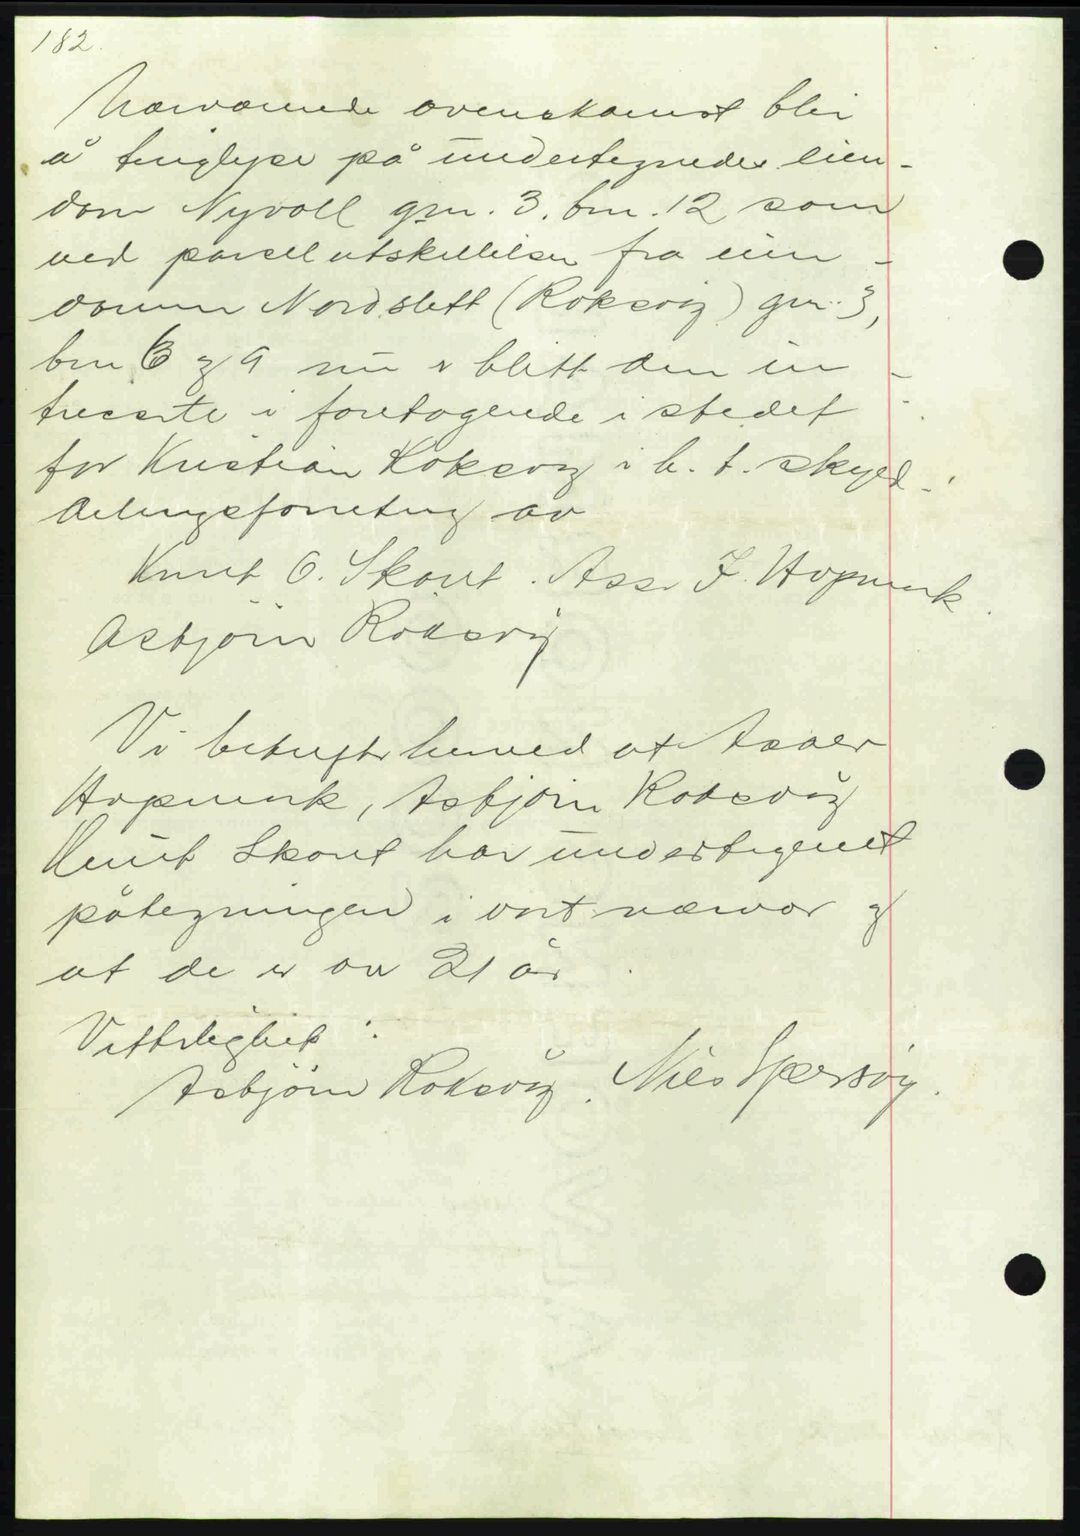 182.
Nærværende overenskomst blir
å tinglyse på undertegnedes eien-
dom Nyvoll gnr. 3, bnr. 12 som
ved parcellutskillelse fra eien-
dommen Nordslett (Roksvåg) gnr. 3,
bnr 6 og 9 nu er blitt den in-
tresserte i foretagende i stedet
for Kristian Roksvåg i h. t. skyld-
delingsforretning av
Knut O. Skout. Asser J. Hopmark.
Asbjörn Roksvåg
Vi bekrefter herved at Asser
Hopmark, Asbjörn Roksvåg
Knut Skout har undertegnet
påtegningen i vort nærvær og
at de er over 21 år.
Vitterlighet:
Asbjörn Roksvåg. Nils Spersøy.